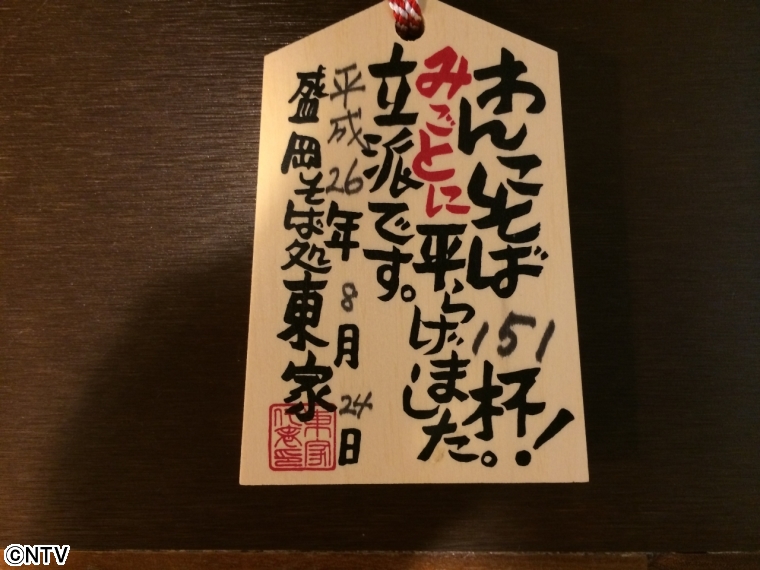 わんこそば151杯!
みごとに平らげました。
立派です。
平成26年8月24日
盛岡そば処東家
東家
©NTV